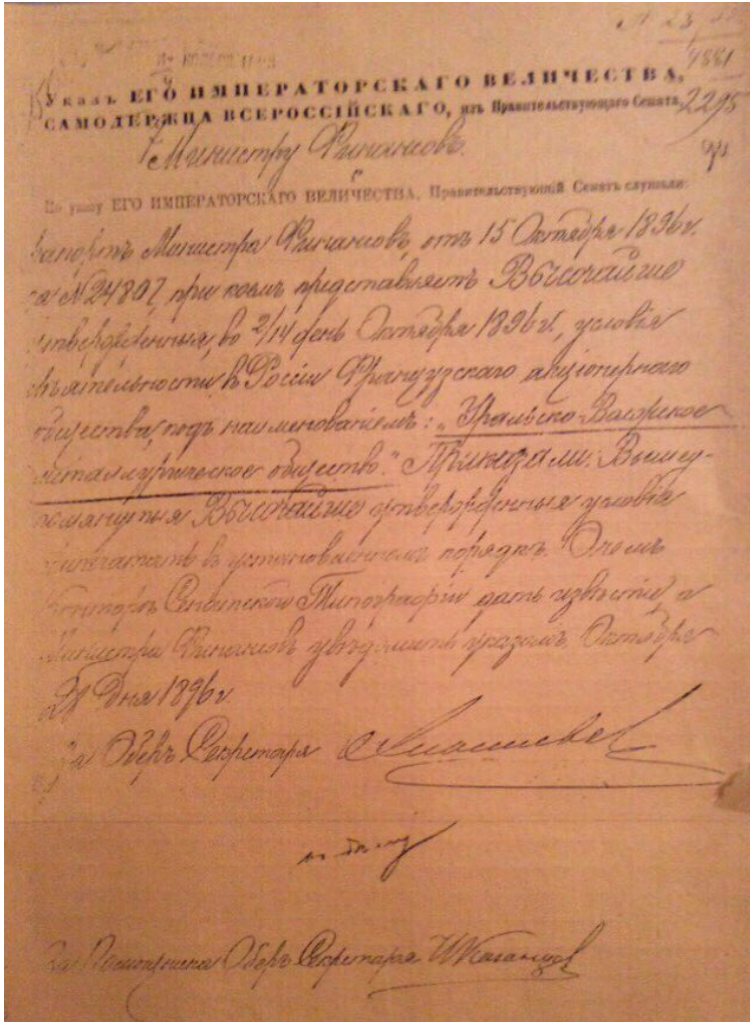 № 23
4881
2295
Указъ ЕГО ИМПЕРАТОРСКАГО ВЕЛИЧЕСТВА,
САМОДЕРЖЦА ВСЕРОССІЙСКАГО, изъ Правительствующаго Сената,
Министру Финансовъ.
По указу ЕГО ИМПЕРАТОРСКАГО ВЕЛИЧЕСТВА, Правительствующій Сенатъ слушали:
рапортъ Министра Финансовъ, отъ 15 Октября 1896 г.
за № 24807, при коемъ представляетъ Высочайше
утвержденныя, во 2/14 день Октября 1896 г., условія
дѣятельности въ Россіи Французскаго акціонернаго
общества, подъ наименованіемъ: „Уральско-Волжское
металлургическое общество." Приказали: Вышеу-
помянутыя Высочайше утвержденныя условія
припечатать въ установленномъ порядкѣ. О чемъ
Конторѣ Сенатской Типографіи дать извѣстіе, а
Министра Финансовъ увѣдомить указомъ. Октября
28 дня 1896 г.
За Оберъ Секретаря
За Помощника Оберъ Секретаря